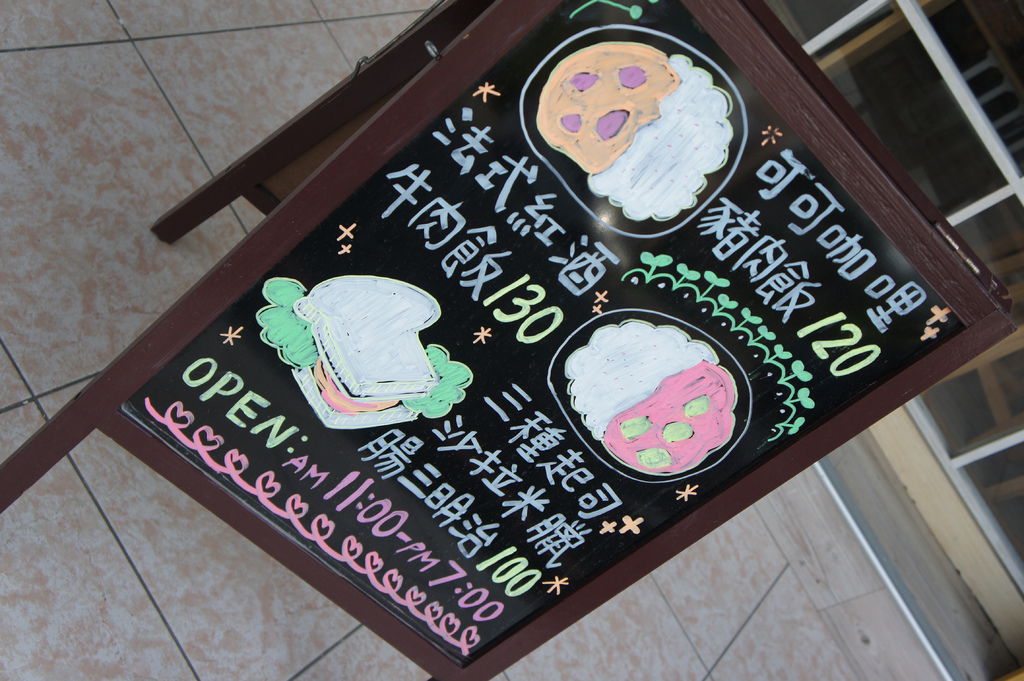 可可咖哩
豬肉飯120
法式紅酒
牛肉飯130
三種起司
沙拉米臘
腸三明治100
OPEN: AM 11:00-PM 7:00